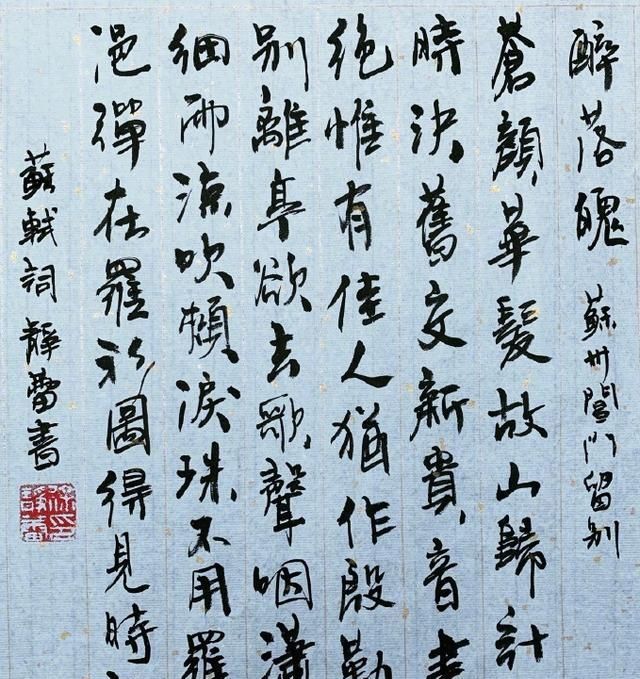 醉落魄 蘇州閶門留别
蒼顔華髮故山歸計
時決舊交新貴音書
絶惟有佳人猶作殷勤
别離亭欲去歌聲咽瀟
細雨涼吹頰淚珠不用羅
浥彈在羅衫圖得見時
蘇軾詞 靜蕾書